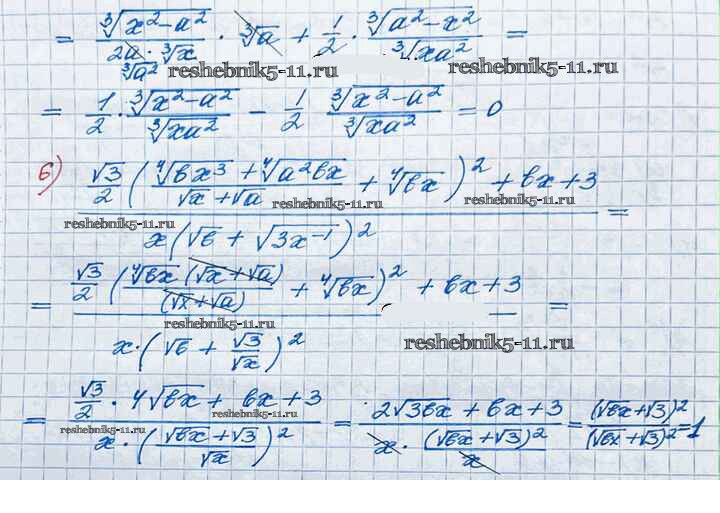 = ∛(x²−a²) / (2a·∛x) · ∛a + 1/2 · ∛(a²−x²) / ∛(xa²) =
∛a²
reshebnik5-11.ru reshebnik5-11.ru
= 1/2 · ∛(x²−a²) / ∛(xa²) − 1/2 ∛(x²−a²) / ∛(xa²) = 0
б) (√3/2 ((∜(bx³) + ∜(a²bx)) / (√x + √a) + ∜(bx))² + bx + 3) / (x(√b + √(3x⁻¹))²) =
reshebnik5-11.ru reshebnik5-11.ru reshebnik5-11.ru
= (√3/2 ((∜(bx) (√x + √a)) / (√x + √a) + ∜(bx))² + bx + 3) / (x·(√b + √3/√x)²) =
reshebnik5-11.ru reshebnik5-11.ru
= (√3/2 · 4√(bx) + bx + 3) / (x·((√(bx) + √3)/√x)²) = (2√(3bx) + bx + 3) / (x · (√(bx) + √3)²/x) = (√(bx) + √3)² / (√(bx) + √3)² = 1
reshebnik5-11.ru reshebnik5-11.ru